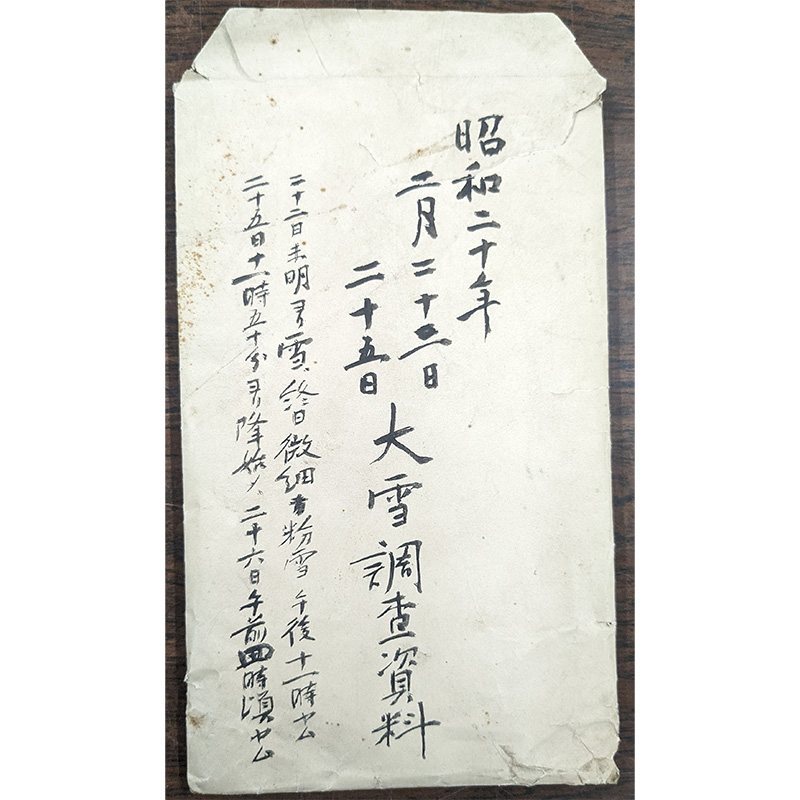 昭和二十年
二月二十二日
二十五日
大雪調査資料
二十二日未明ヨリ雪、終日微細 粉雪午後十一時ヤム
二十五日十一時五十分ヨリ降始メ、二十六日午前四時頃ヤム